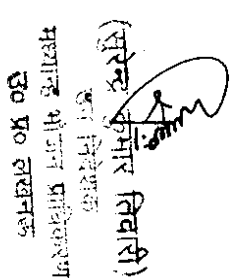 (सुरेन्द्र कुमार तिवारी)
उप निदेशक
मध्यान्ह भोजन प्राधिकरण
उ० प्र० लखनऊ